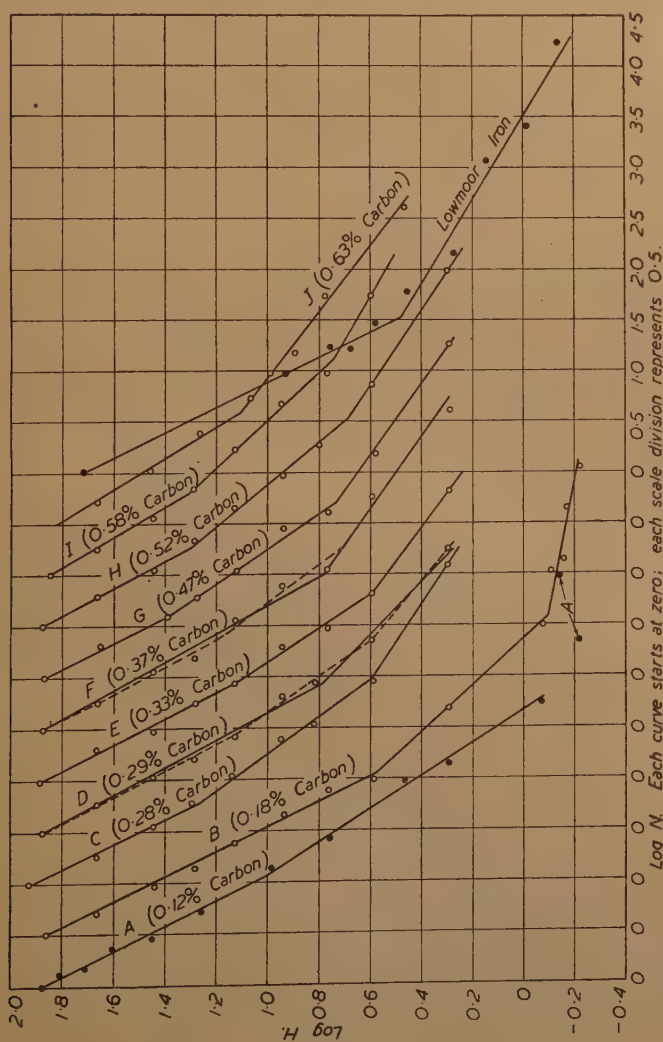 2·0
1·8
1·6
1·4
1·2
1·0
0·8
0·6
0·4
0·2
0
-0·2
-0·4
Log H.
A (0·12% Carbon)
B (0·18% Carbon)
C (0·28% Carbon)
D (0·29% Carbon)
E (0·33% Carbon)
F (0·37% Carbon)
G (0·47% Carbon)
H (0·52% Carbon)
I (0·58% Carbon)
J (0·63% Carbon)
Lowmoor Iron
A
0 0 0 0 0 0 0 0 0 0 0 0·5 1·0 1·5 2·0 2·5 3·0 3·5 4·0 4·5
Log N. Each curve starts at zero; each scale division represents 0·5.